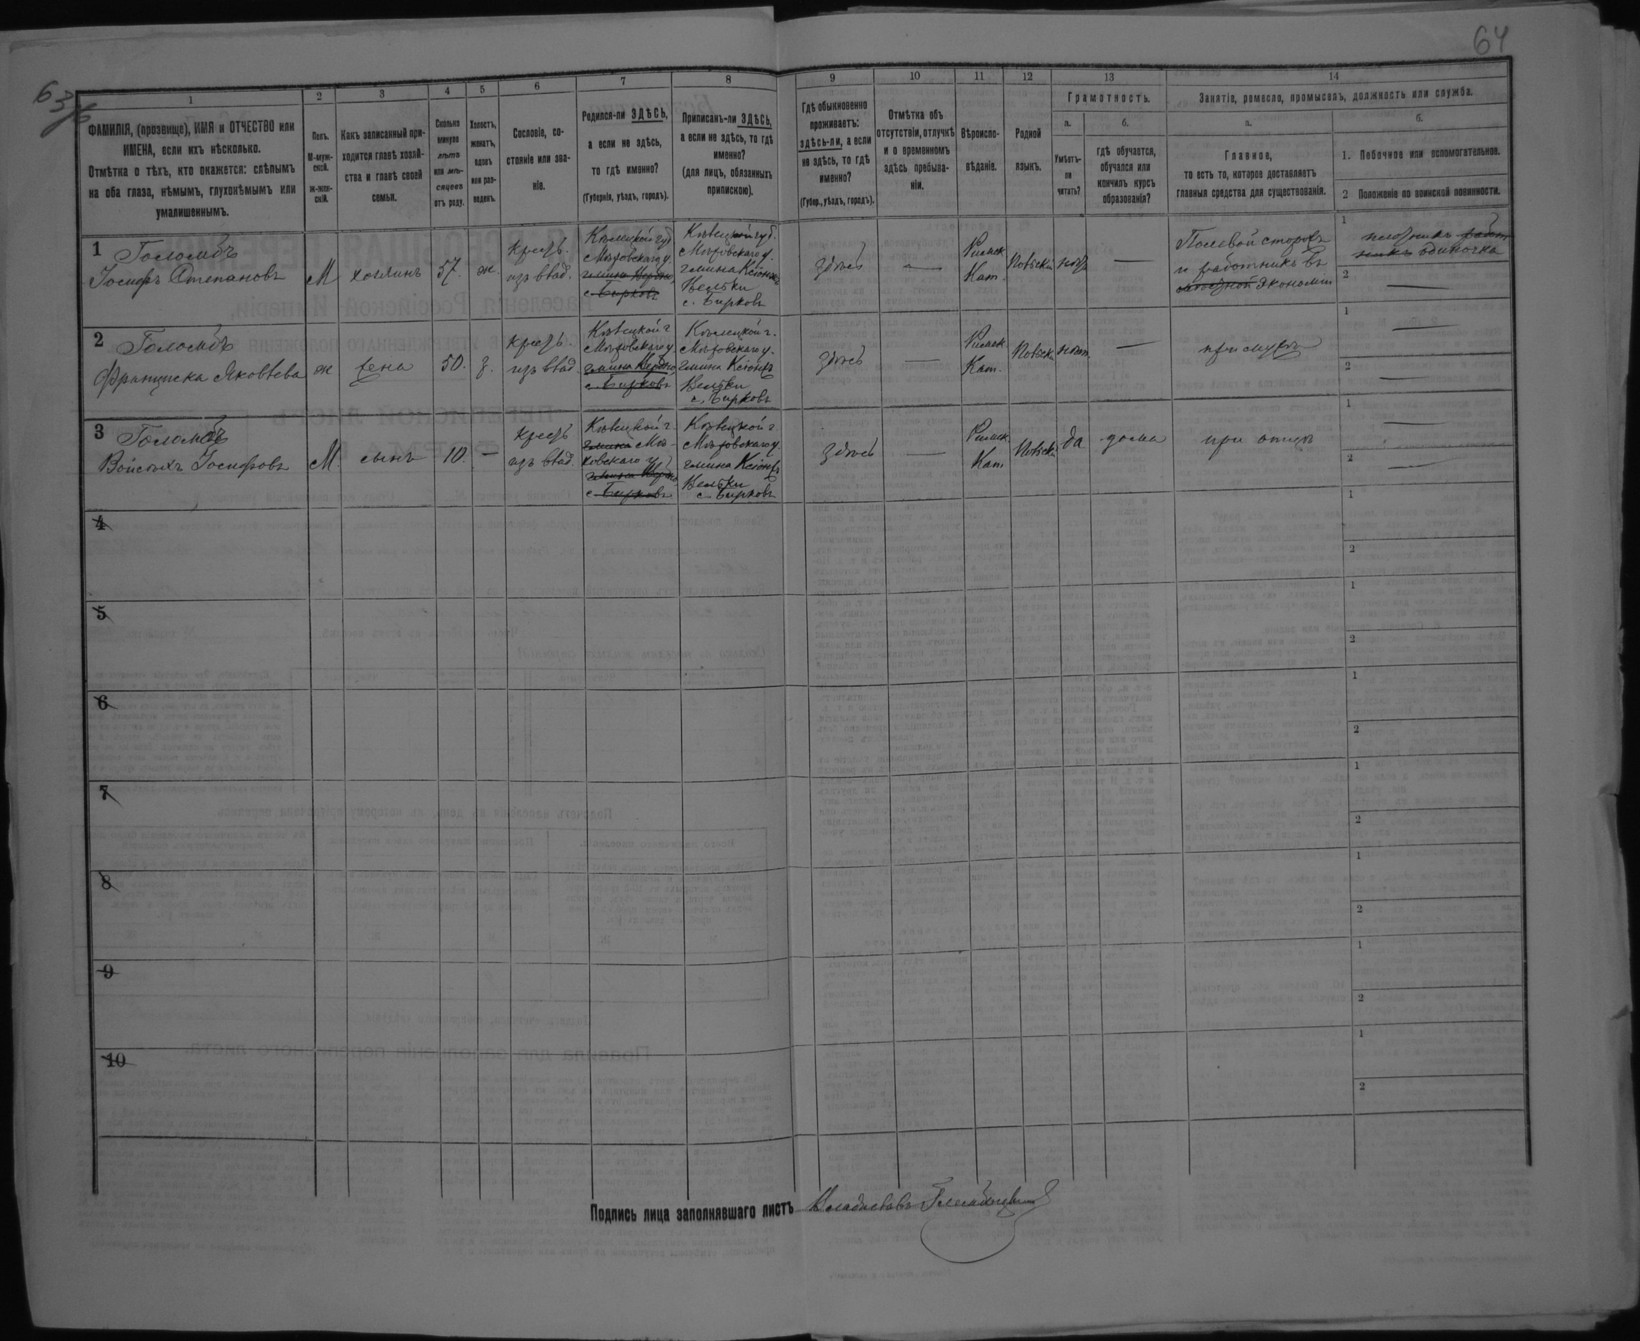 64
63/6
1
2
3
4
5
6
7
8
9
10
11
12
13
14
ФАМИЛІЯ, (прозвище), ИМЯ и ОТЧЕСТВО или
ИМЕНА, если ихъ нѣсколько.
Отмѣтка о тѣхъ, кто окажется: слѣпымъ
на оба глаза, нѣмымъ, глухонѣмымъ или
умалишеннымъ.
Полъ.
М-муж-
ской.
Ж-жен-
скій.
Какъ записанный при-
ходится главѣ хозяй-
ства и главѣ своей
семьи.
Сколько
минуло
лѣтъ
или мѣ-
сяцевъ
отъ роду.
Холостъ,
женатъ,
вдовъ
или раз-
веденъ.
Сословіе, со-
стояніе или зва-
ніе.
Родился-ли ЗДѢСЬ,
а если не здѣсь,
то гдѣ именно?
(Губернія, уѣздъ, городъ).
Приписанъ-ли ЗДѢСЬ,
а если не здѣсь, то гдѣ
именно?
(для лицъ, обязанныхъ
припискою).
Гдѣ обыкновенно
проживаетъ:
здѣсь-ли, а если
не здѣсь, то гдѣ
именно?
(Губер., уѣздъ, городъ).
Отмѣтка объ
отсутствіи, отлучкѣ
и о временномъ
здѣсь пребыва-
ніи.
Вѣроиспо-
вѣданіе.
Родной
языкъ.
Грамотность.
а.
Умѣетъ-
ли
читать?
б.
гдѣ обучается,
обучался или
кончилъ курсъ
образованія?
Занятіе, ремесло, промыселъ, должность или служба.
а.
Главное,
то есть то, которое доставляетъ
главныя средства для существованія.
б.
1. Побочное или вспомогательное.
2 Положеніе по воинской повинности.
1
Голомбъ
Іосифъ Степановъ
М
хозяинъ
57.
ж.
крест.
изъ влад.
Кѣлецкой губ.
Мѣховскаго у.
гмина
с. Бирковъ
Кѣлецкой губ.
Мѣховскаго у.
гмина Ксіонжъ
Вельки
с. Бирковъ
здѣсь
—
Римск.
Кат.
Польскій
нѣтъ
—
Полевой сторожъ
и работникъ въ
экономіи
1
одиночка
2 —
2
Голомбъ
Франциска Яковлева
ж
жена
50.
з.
крест.
изъ влад.
Кѣлецкой г.
Мѣховскаго у.
гмина
с. Бирковъ
Кѣлецкой г.
Мѣховскаго у.
гмина Ксіонжъ
Вельки
с. Бирковъ
здѣсь
—
Римск.
Кат.
Польск.
нѣтъ
—
при мужѣ
1 —
2 —
3
Голомбъ
Войсѣхъ Іосифовъ
М.
сынъ
10.
—
крест.
изъ влад.
Кѣлецкой г.
гмина Мѣ-
ховскаго у.
с. Бирковъ
Кѣлецкой г.
Мѣховскаго у.
гмина Ксіонжъ
Вельки
с. Бирковъ
здѣсь
—
Римск.
Кат.
Польск.
да
дома
при отцѣ
1 —
2 —
4
1
2
5
1
2
6
1
2
7
1
2
8
1
2
9
1
2
10
1
2
Подпись лица заполнявшаго листъ